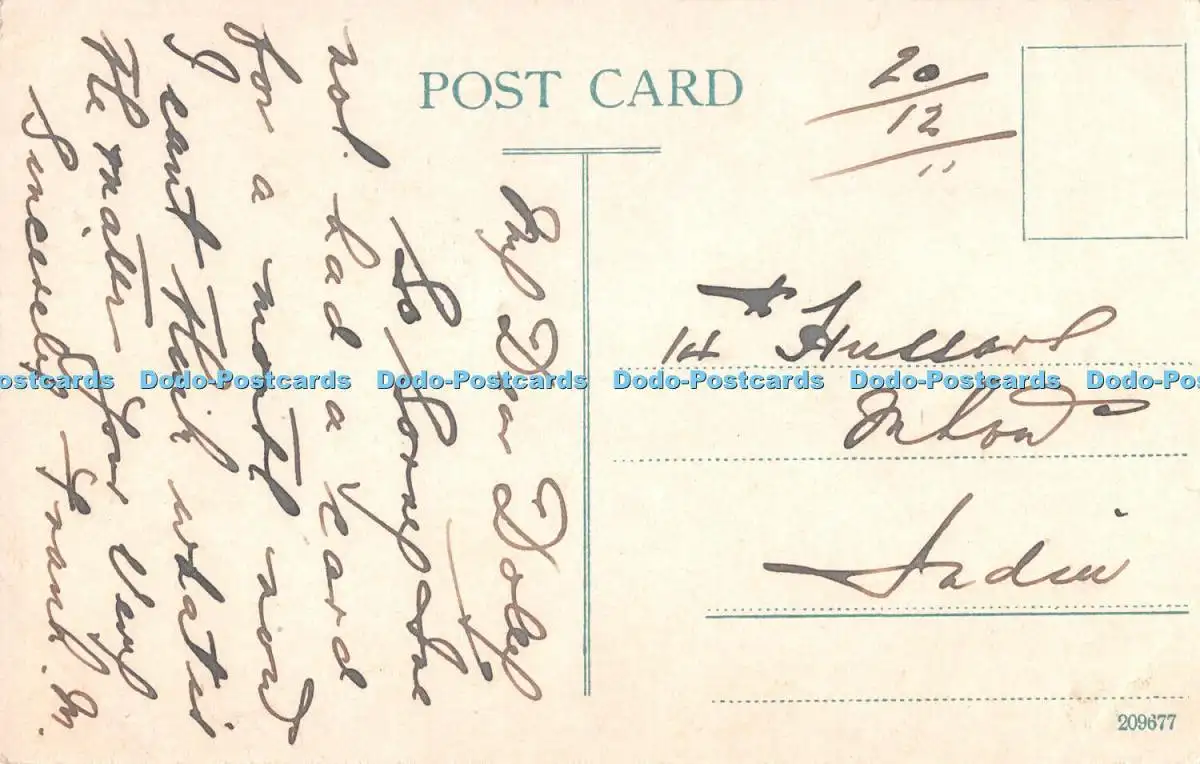 POST CARD
20/12 11
My Dear Dolly
So Sorry I've
not had a card
for a month now
I cant think what is
the matter your Very
Sincerely Frank. M.
14 Hussars
Mhow
India
209677
Dodo-Postcards Dodo-Postcards Dodo-Postcards Dodo-Postcards Dodo-Postcards Dodo-Postcards